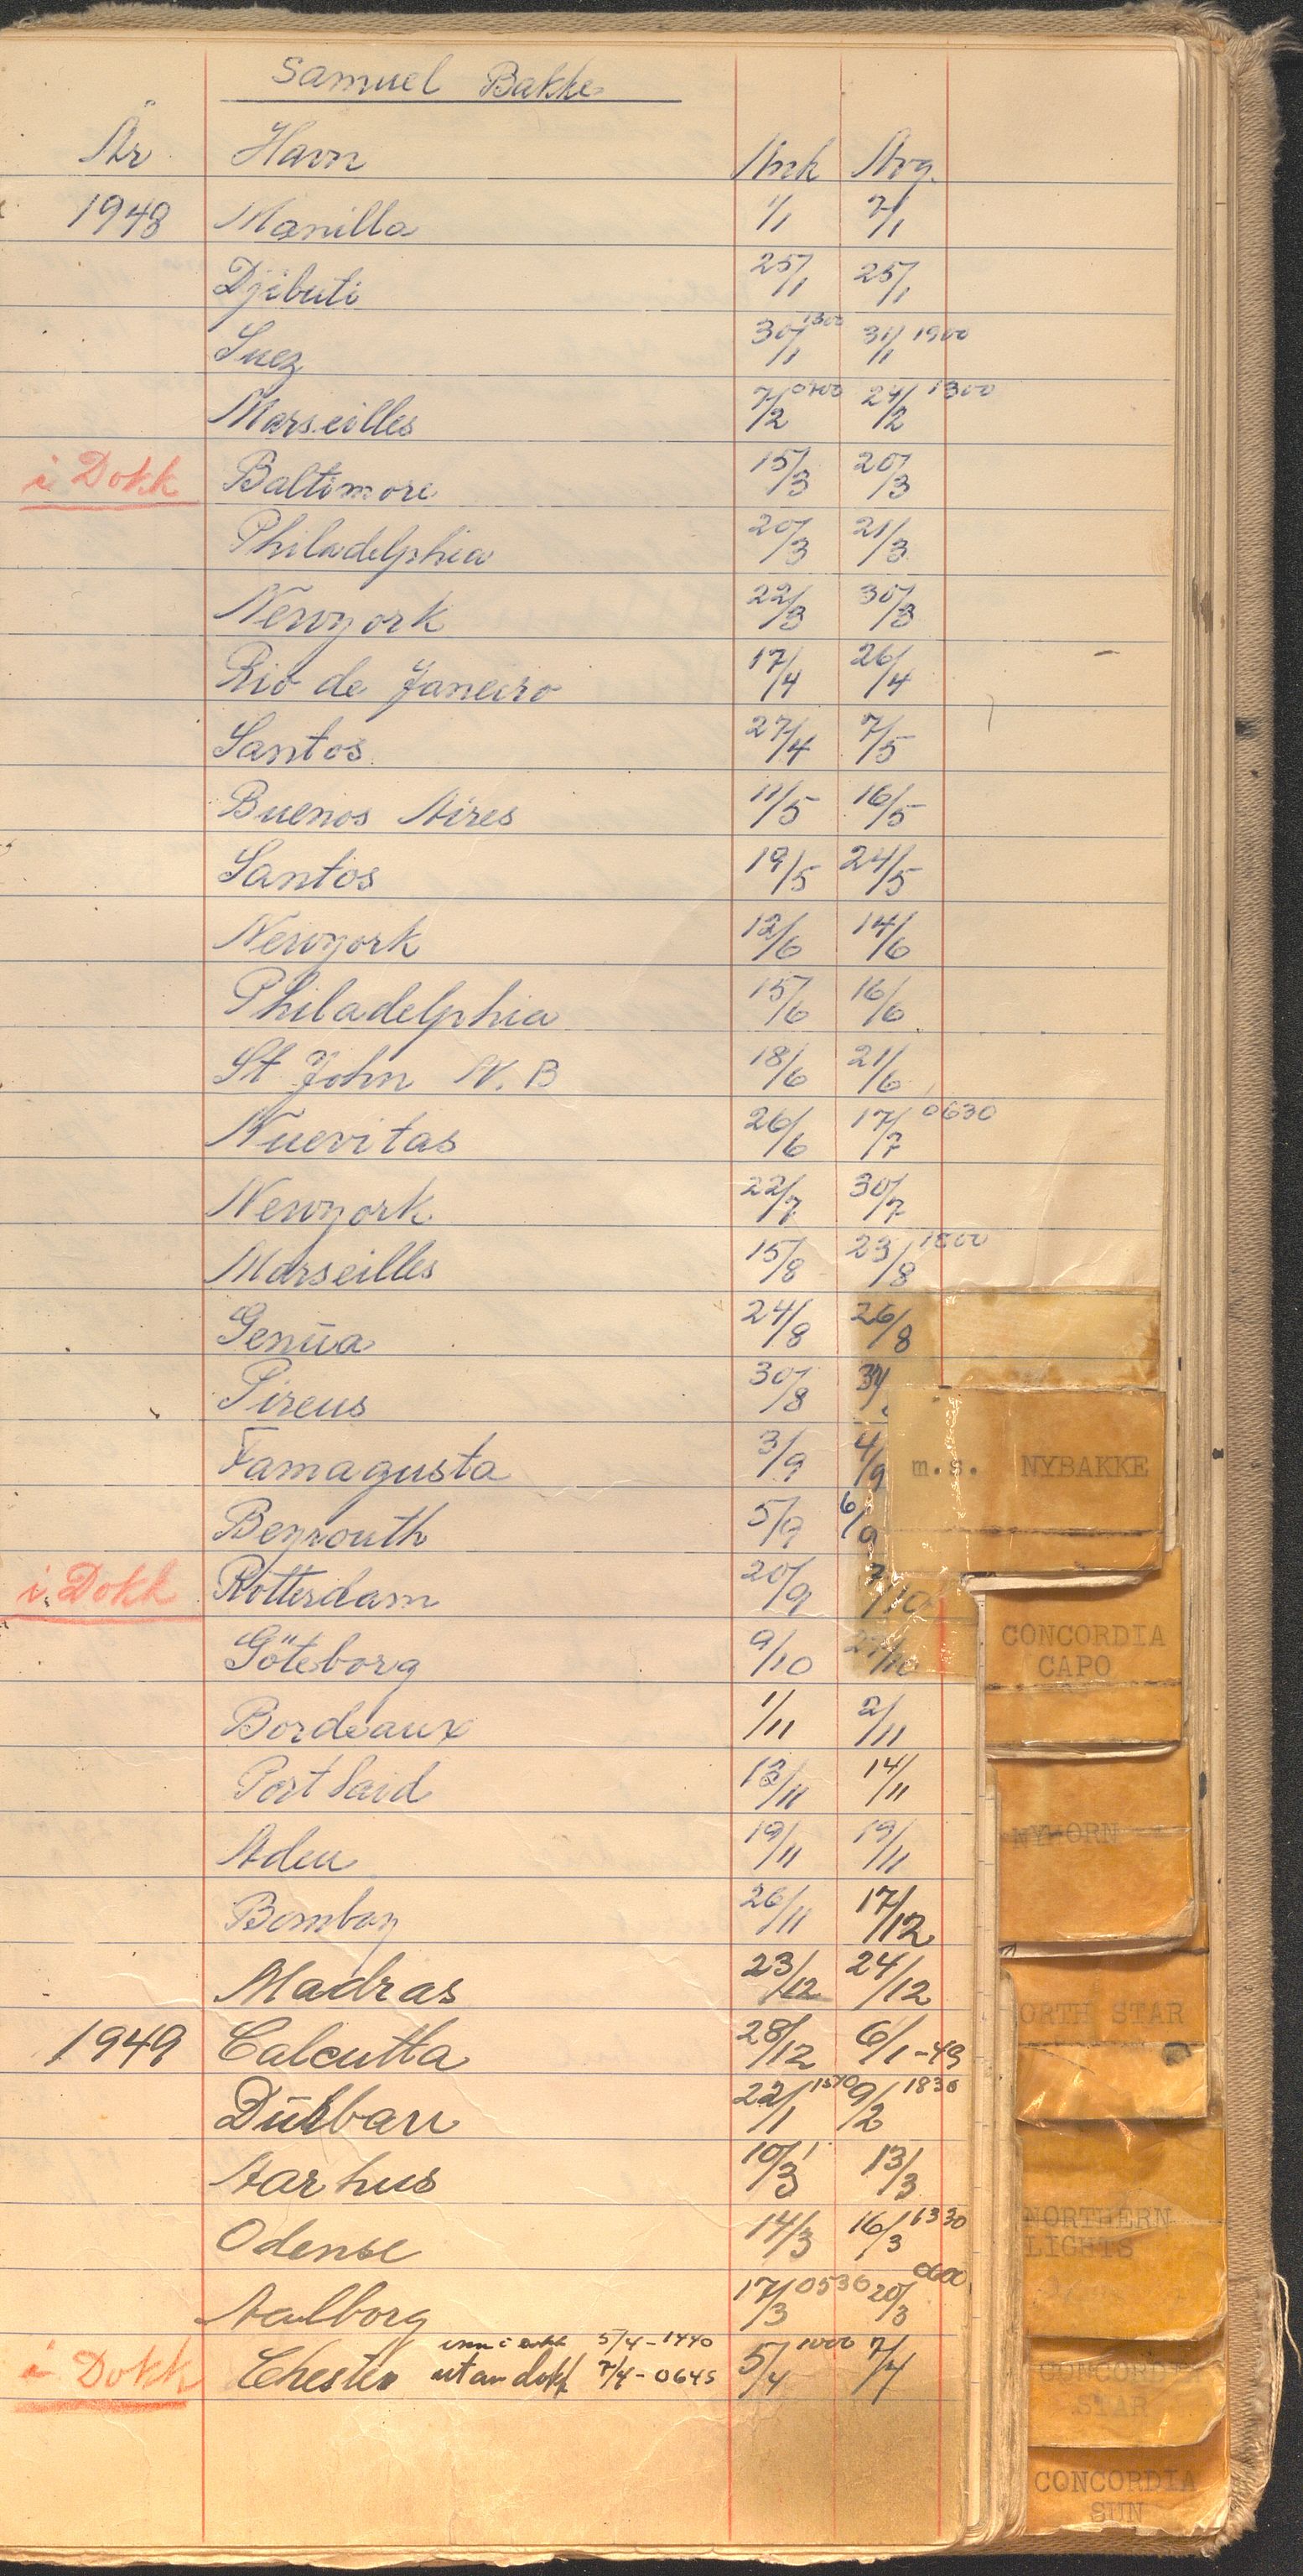 Samuel Bakke
År Havn Ank Avg.
1948 Manilla 1/1 7/1
Djibuti 25/1 25/1
Suez 30/1 1300 31/1 1900
Marseilles 7/2 0400 24/2 1300
i Dokk Baltimore 15/3 20/3
Philadelphia 20/3 21/3
Newyork 22/3 30/3
Rio de Janeiro 17/4 26/4
Santos 27/4 7/5
Buenos Aires 11/5 16/5
Santos 19/5 24/5
Newyork 12/6 14/6
Philadelphia 15/6 16/6
St John N.B 18/6 21/6
Nuevitas 26/6 17/7 0630
Newyork 22/7 30/7
Marseilles 15/8 23/8 1800
Genua 24/8 26/8
Pireus 30/8
Famagusta 3/9 4/9
m.s. NYBAKKE
Beyrouth 5/9 6/9
i Dokk Rotterdam 20/9 7/10
Göteborg 9/10 27/10
CONCORDIA
CAPO
Bordeaux 1/11 2/11
Port Said 13/11 14/11
Aden 19/11 19/11
NYHORN
Bombay 26/11 17/12
Madras 23/12 24/12
ORTH STAR
1949 Calcutta 28/12 6/1-49
Durban 22/1 9/2 1830
Aarhus 10/3 13/3
Odense 14/3 16/3 1330
NORTHERN
LIGHTS
Aalborg 17/3 0530 20/3 0600
inn i dokk 5/4-1440
i Dokk Chester ut av dokk 7/4-0645 5/4 1000 7/4
CONCORDIA
STAR
CONCORDIA
SUN